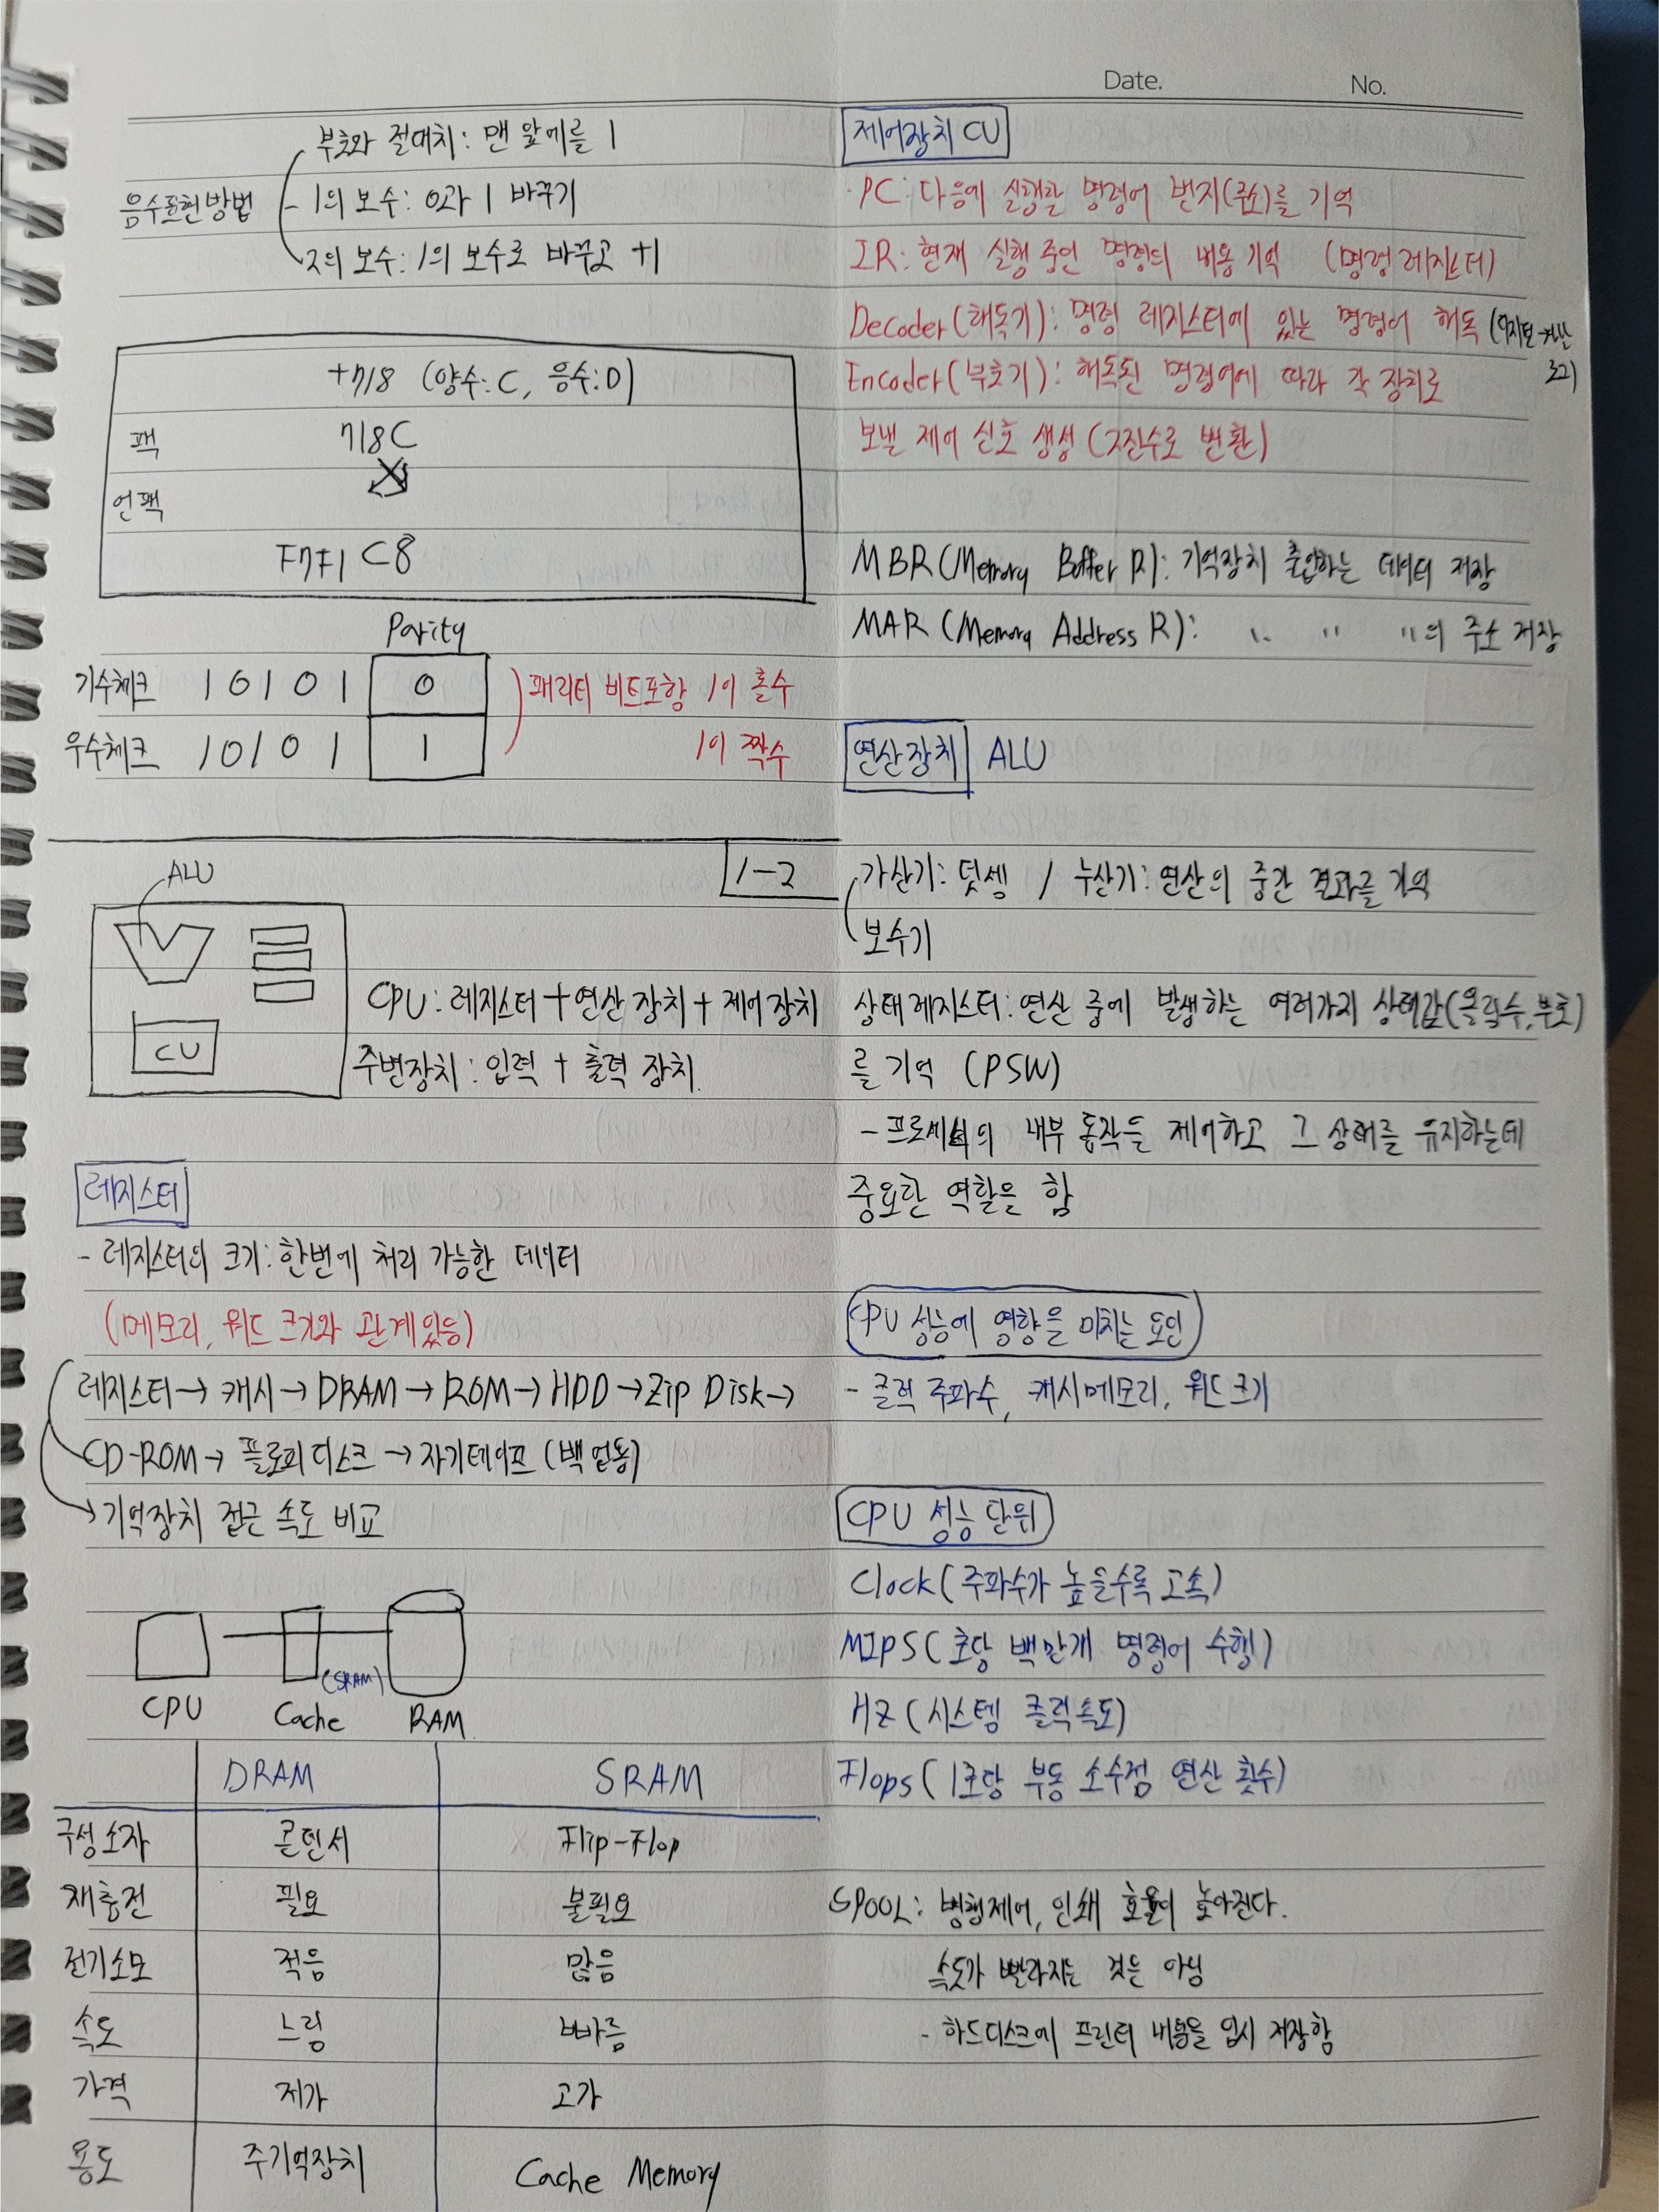 Date. No.
부호와 절대치: 맨 앞에를 1
음수표현방법 - 1의 보수: 0과 1 바꾸기
2의 보수: 1의 보수로 바꾸고 +1
+718 (양수: C, 음수: D)
팩 718C
언팩
F7F1C8
Parity
기수체크 10101 0 패리티 비트포함 1이 홀수
우수체크 10101 1 1이 짝수
1-2
ALU
CU
CPU: 레지스터 + 연산 장치 + 제어 장치
주변장치: 입력 + 출력 장치.
레지스터
- 레지스터의 크기: 한번에 처리 가능한 데이터
(메모리, 워드 크기와 관계있음)
레지스터 → 캐시 → DRAM → ROM → HDD → Zip Disk →
CD-ROM → 플로피 디스크 → 자기테이프 (백업용)
기억장치 접근 속도 비교
(SRAM)
CPU Cache RAM
DRAM SRAM
구성소자 콘덴서 Flip-Flop
재충전 필요 불필요
전기소모 적음 많음
속도 느림 빠름
가격 저가 고가
용도 주기억장치 Cache Memory
제어장치 CU
· PC: 다음에 실행할 명령어 번지(주소)를 기억
IR: 현재 실행 중인 명령의 내용 기억 (명령 레지스터)
Decoder(해독기): 명령 레지스터에 있는 명령어 해독
Encoder(부호기): 해독된 명령어에 따라 각 장치로
보낼 제어 신호 생성 (2진수로 변환)
MBR(Memory Buffer R): 기억장치 출입하는 데이터 저장
MAR (Memory Address R): " " "의 주소 저장
연산장치 ALU
가산기: 덧셈 / 누산기: 연산의 중간 결과를 기억
보수기
상태레지스터: 연산 중에 발생하는 여러가지 상태값(올림수, 부호)
를 기억 (PSW)
- 프로세서의 내부 동작을 제어하고 그 상태를 유지하는데
중요한 역할을 함
CPU 성능에 영향을 미치는 요인
- 클럭 주파수, 캐시메모리, 워드 크기
CPU 성능 단위
Clock (주파수가 높을수록 고속)
MIPS (초당 백만개 명령어 수행)
HZ (시스템 클럭속도)
Flops (1초당 부동 소수점 연산 횟수)
SPOOL: 병행제어, 인쇄 효율이 높아진다.
속도가 빨라지는 것은 아님
- 하드디스크에 프린터 내용을 임시 저장함